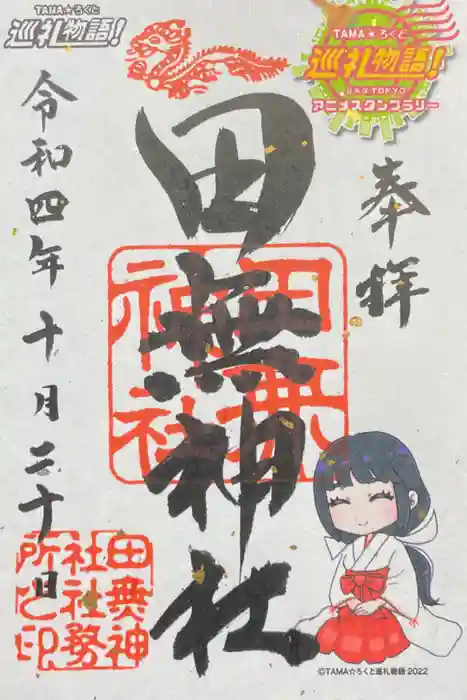 TAMA☆ろくと
巡礼物語!
TAMA★ろくと
巡礼物語!
アニメスタンプラリー
奉拝
田無神社
田無神社
令和四年十月二十日
田無神
社社務
所之印
©TAMA☆ろくと巡礼物語 2022